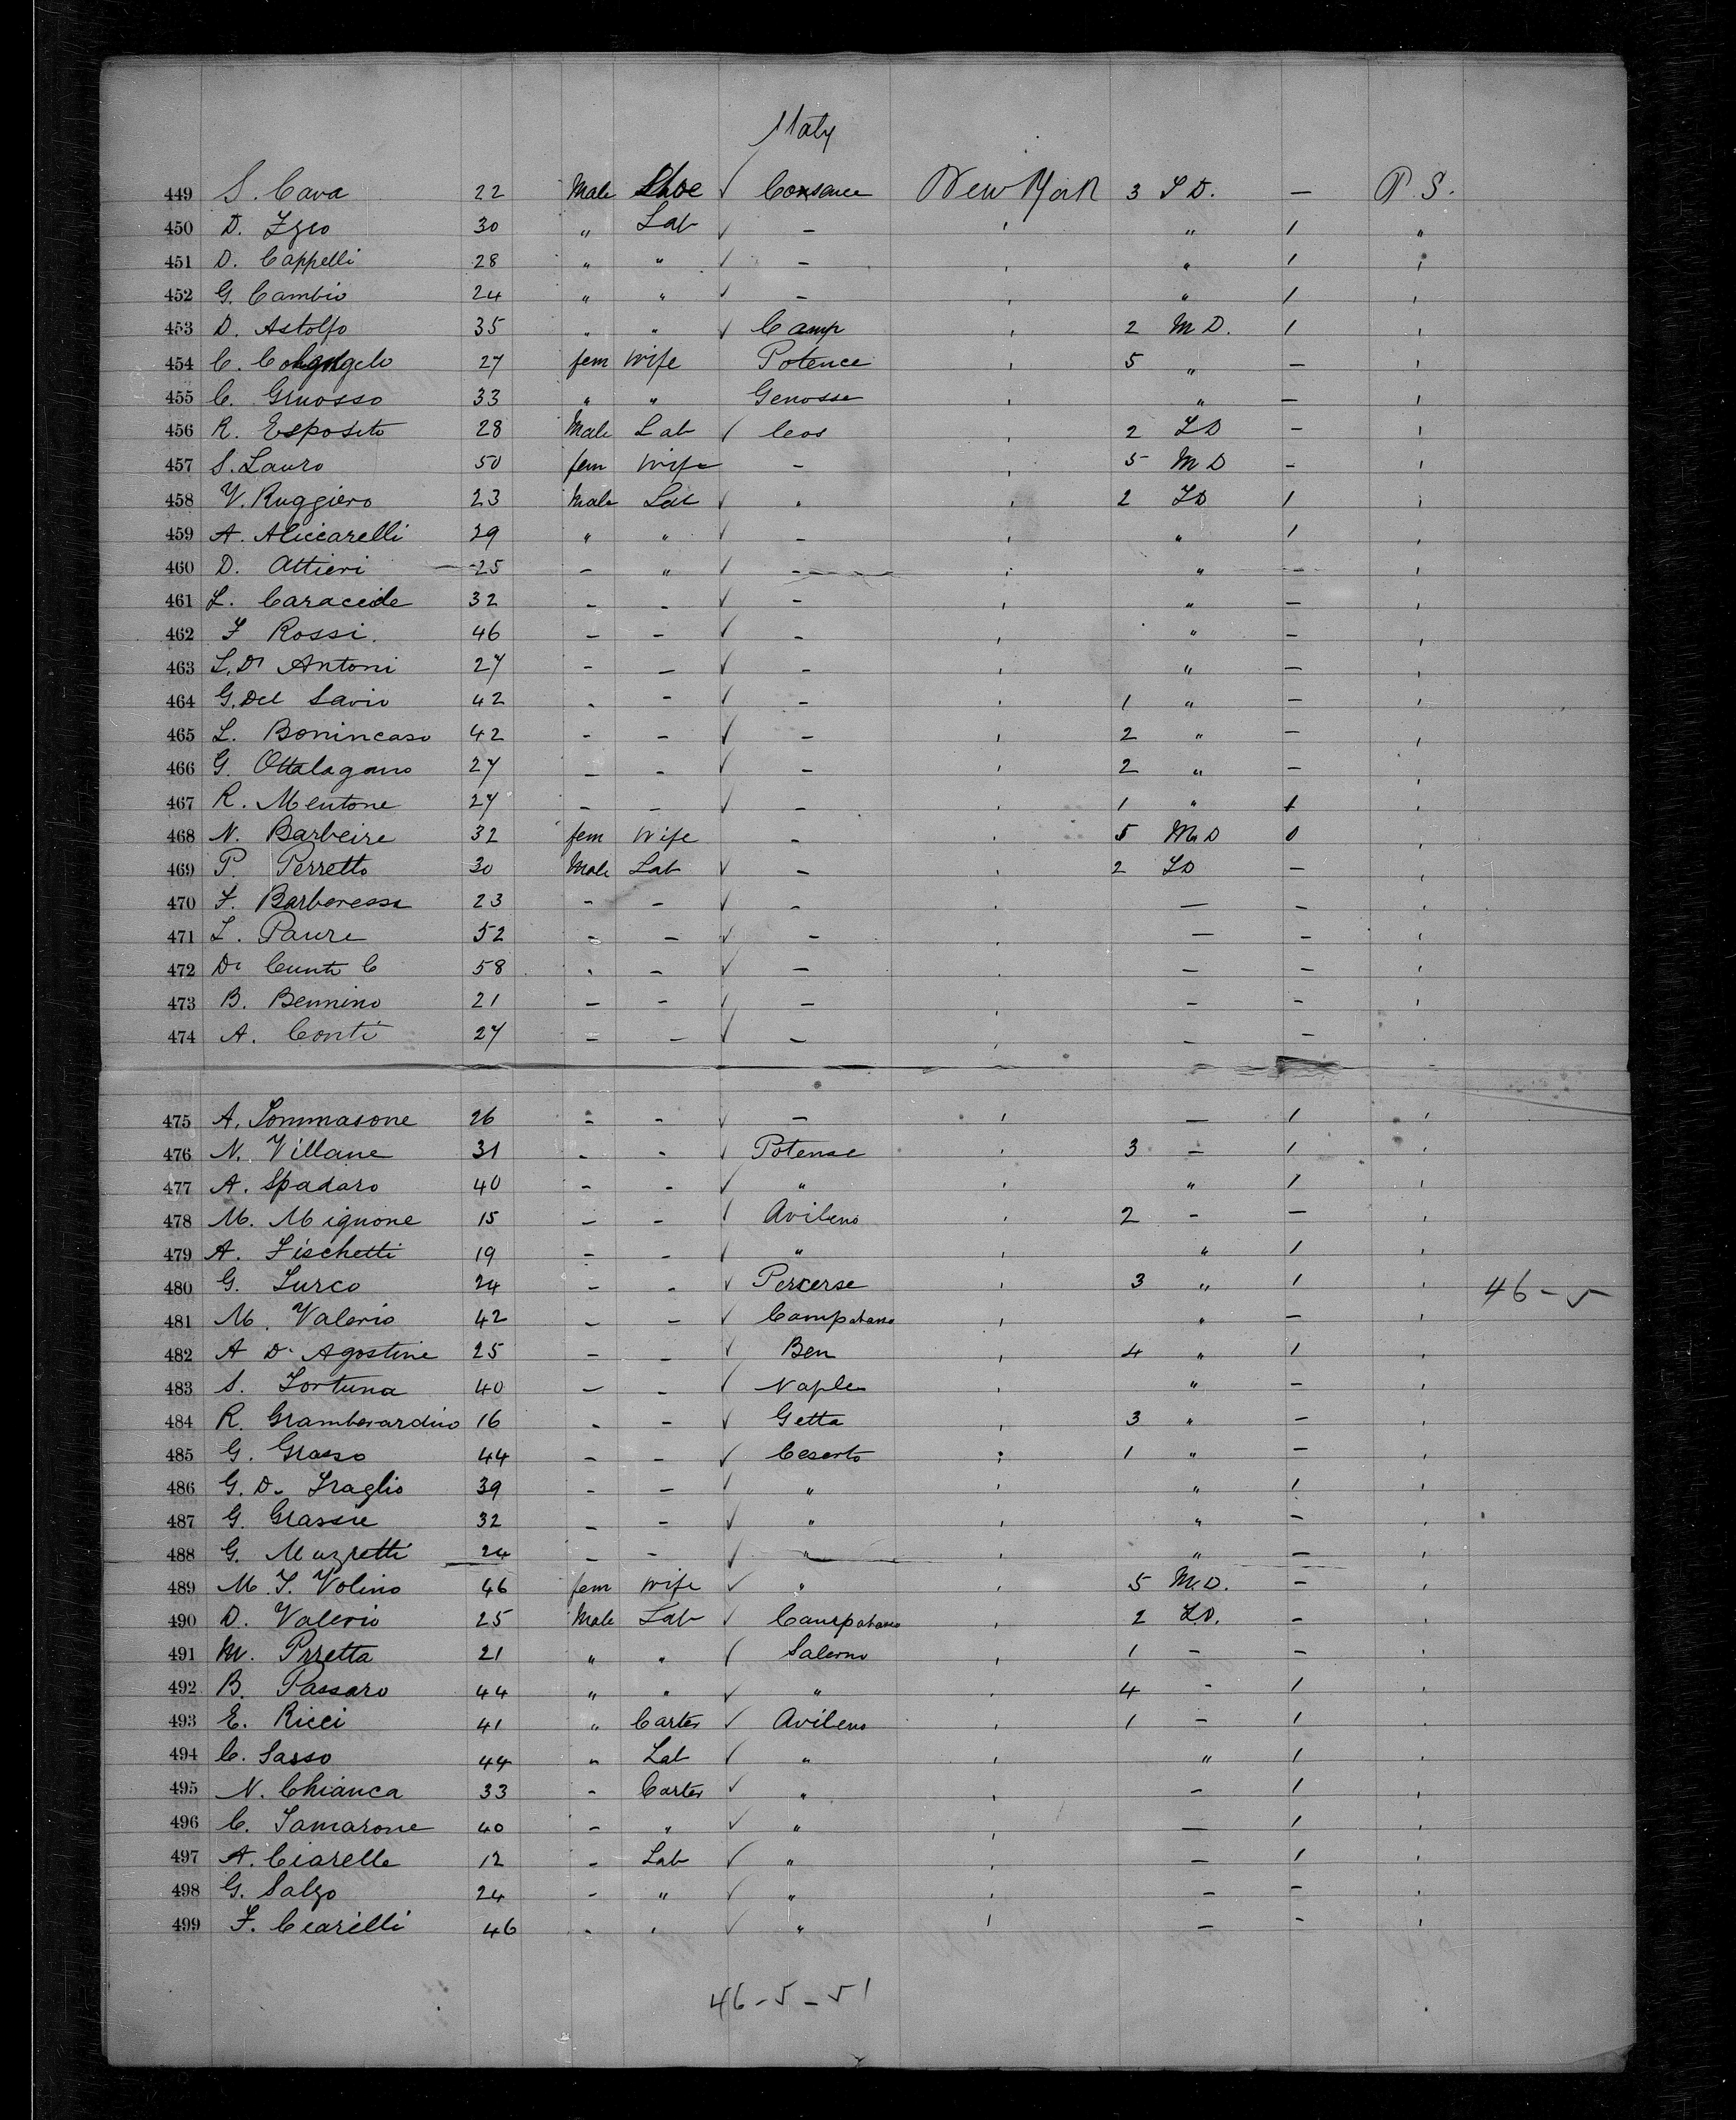 Italy
449 S. Cava 22 Male Shoe ✓ Consance New York 3 L D. — P. S.
450 D. Izzo 30 " Lab ✓ - ' " 1 "
451 D. Cappelli 28 " " ✓ - ' " 1 '
452 G. Cambio 24 " " ✓ - ' " 1 '
453 D. Astolfo 35 " " ✓ Camp ' 2 M D. 1 '
454 C. 27 fem Wife Potence ' 5 " — '
455 C. Gruosso 33 " " Genosse ' " — '
456 R. Esposito 28 Male Lab ✓ Ceos ' 2 L D - '
457 S. Lauro 50 fem Wife - ' 5 M D - '
458 V. Ruggiero 23 Male Lab ✓ " ' 2 L D 1 '
459 A. Aliccarelli 29 " " ✓ - ' " 1 '
460 D. Attieri 25 - " ✓ - ' " - '
461 L. Caracciole 32 - - ✓ - ' " - '
462 F Rossi. 46 - - ✓ - ' " - '
463 L. Di Antoni 27 - - ✓ - ' " - '
464 G. Del Savio 42 - - ✓ - ' 1 " - '
465 L. Bonincaso 42 - - ✓ - ' 2 " - '
466 G. Ottalagano 27 - - ✓ - ' 2 " - '
467 R. Mentone 27 - - ✓ - ' 1 " 1 '
468 N. Barbeire 32 fem Wife - ' 5 M D 0 '
469 P. Perretto 30 Male Lab ✓ - ' 2 L D - '
470 F. Barberessa 23 - - ✓ - ' — - '
471 L. Paure 52 - - ✓ - ' — - '
472 Di Cunti C 58 - - ✓ - ' — - '
473 B. Bennino 21 - - ✓ - ' - - '
474 A. Conti 27 - - ✓ - ' - - '
475 A. Tommasone 26 - - ✓ - ' — 1 '
476 N. Villane 31 - - ✓ Potense ' 3 - 1 '
477 A. Spadaro 40 - - ✓ " ' " 1 '
478 M. Mignone 15 - - ✓ Avileno ' 2 - - '
479 A. Fischetti 19 - - ✓ " ' " 1 '
480 G. Turco 24 - - ✓ Percerse ' 3 " 1 ' 46 - 5
481 M. Valerio 42 - - ✓ Campobasso ' " - '
482 A D. Agostine 25 - - ✓ Ben ' 4 " 1 '
483 S. Fortuna 40 - - ✓ Naples ' " - '
484 R. Gramberardino 16 - - ✓ Getta ' 3 " - '
485 G. Grasso 44 - - ✓ Ceserto ' 1 " - '
486 G. D. Traglio 39 - - ✓ " ' " 1 '
487 G. Grassie 32 - - ✓ " ' " - '
488 G. Muzretti 24 - - ✓ " ' " - '
489 M. T. Volino 46 fem Wife ✓ " ' 5 M. D. - '
490 D. Valerio 25 Male Lab ✓ Campobasso ' 2 L D. - '
491 M. Przetta 21 " " ✓ Salerno ' 1 - - '
492 B. Passaro 44 " " ✓ " ' 4 - 1 '
493 E. Ricci 41 " Carter ✓ Avileno ' 1 - 1 '
494 C. Sasso 44 " Lab ✓ " ' " 1 '
495 N. Chianca 33 - Carter ✓ " ' - 1 '
496 C. Tamarone 40 - " ✓ " ' — 1 '
497 A. Ciarelle 12 - Lab ✓ " ' - 1 '
498 G. Salzo 24 - " ✓ " ' - - '
499 F. Ciarilli 46 - ' ✓ " ' - - '
46 - 5 - 51